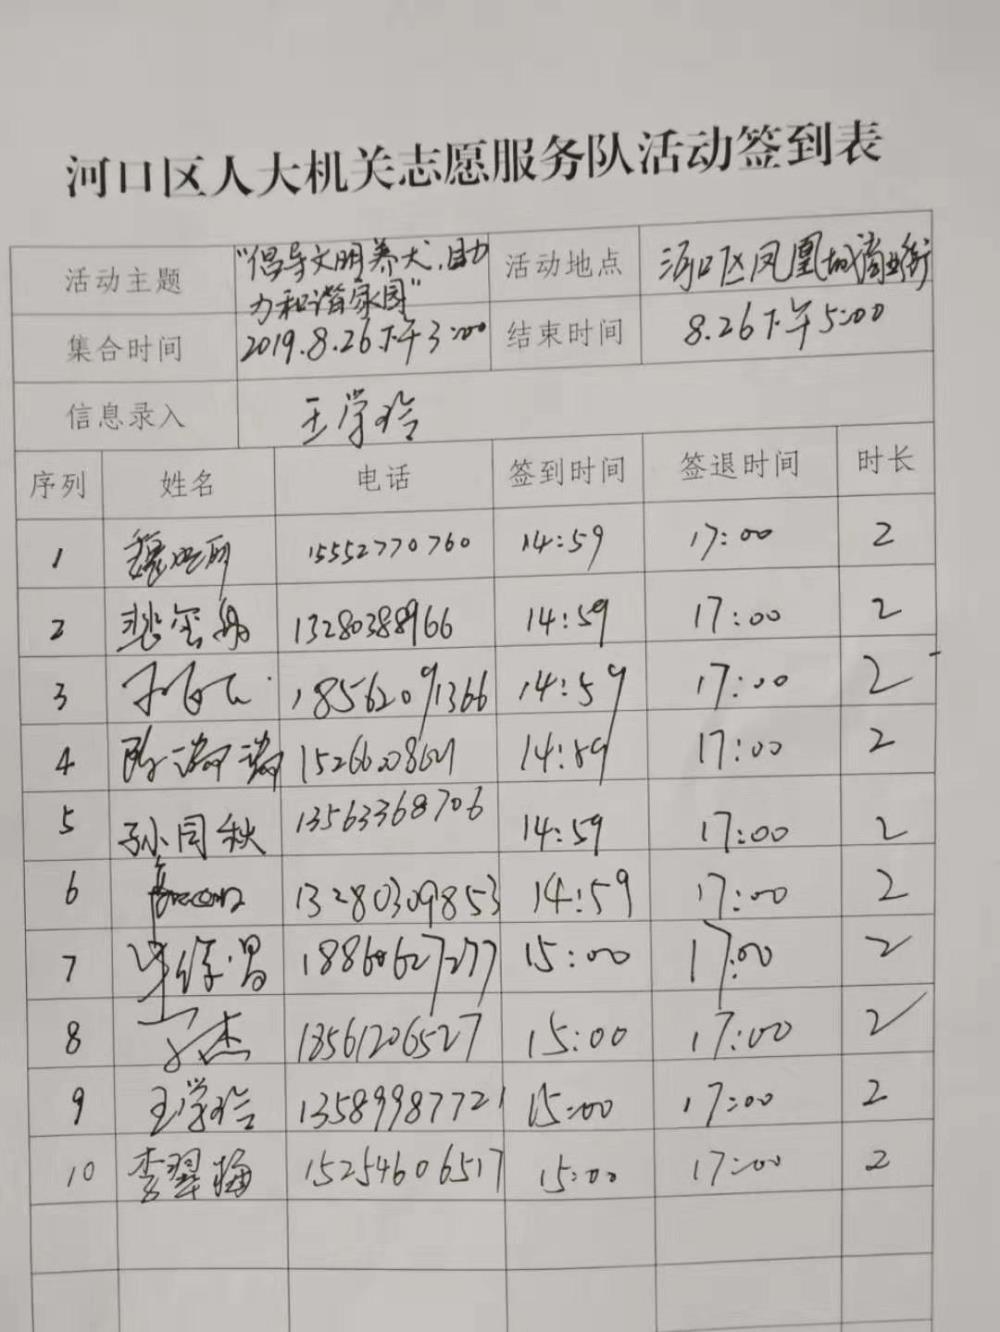 河口区人大机关志愿服务队活动签到表
活动主题 "倡导文明养犬,助力和谐家园" 活动地点 河口区凤凰城商业街
集合时间 2019.8.26下午3:00 结束时间 8.26下午5:00
信息录入 王学玲
序列 姓名 电话 签到时间 签退时间 时长
1 15552770760 14:59 17:00 2
2 13280388966 14:59 17:00 2
3 18562091366 14:59 17:00 2
4 陈瑞瑞 14:59 17:00 2
5 孙同秋 13563368706 14:59 17:00 2
6 13280309853 14:59 17:00 2
7 18860627277 15:00 17:00 2
8 丁杰 13561206527 15:00 17:00 2
9 王学玲 13589987721 15:00 17:00 2
10 李翠梅 15254606517 15:00 17:00 2